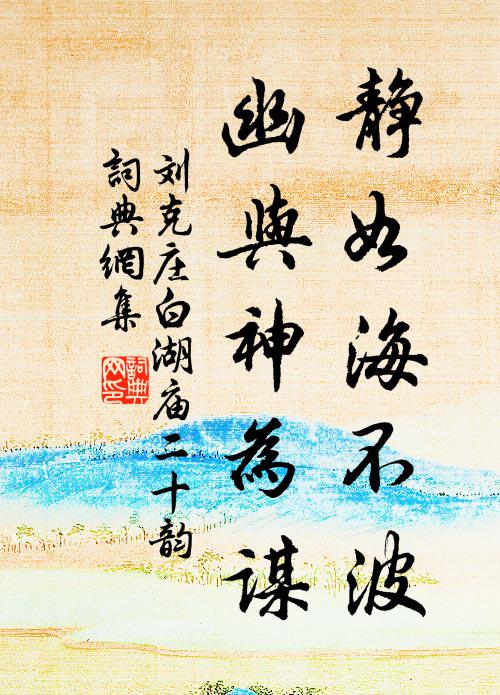 静如海不波
幽與神為謀
刘克庄白湖庙二十韵
詞典網集
詞典網印